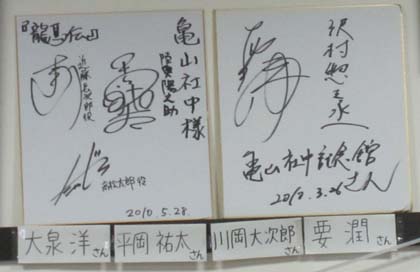 『龍馬伝』
亀山社中様
陸奥陽之助
近藤長次郎役
2010.5.28.
沢村惣之丞
亀山社中記念館さん
2010.3.26
大泉 洋さん
平岡祐太さん
川岡大次郎さん
要 潤さん